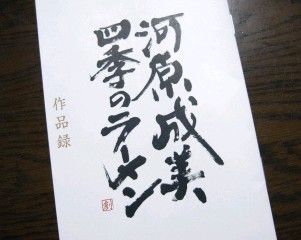 河原成美
四季のラーメン
作品録